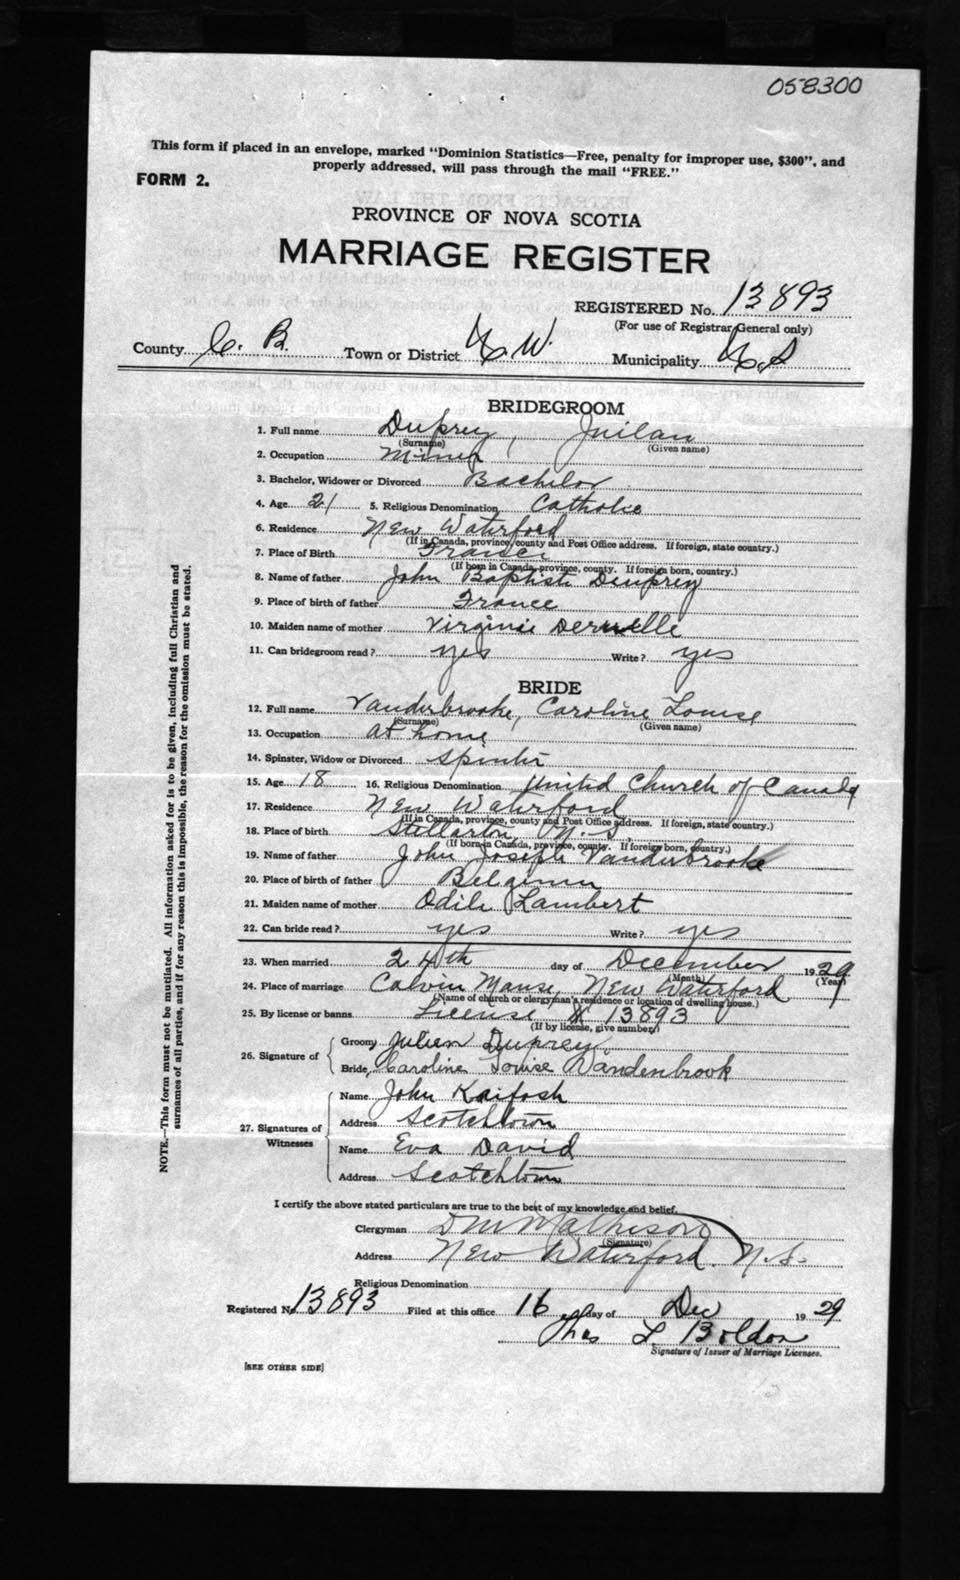 058300
This form if placed in an envelope, marked "Dominion Statistics—Free, penalty for improper use, $300", and
properly addressed, will pass through the mail "FREE."
FORM 2.
PROVINCE OF NOVA SCOTIA
MARRIAGE REGISTER
REGISTERED No. 13893
(For use of Registrar General only)
County C. B. Town or District N W. Municipality N.S
BRIDEGROOM
1. Full name Duprey, Juilan
(Surname) (Given name)
2. Occupation Miner
3. Bachelor, Widower or Divorced Bachelor
4. Age 21 5. Religious Denomination Catholic
6. Residence New Waterford
(If in Canada, province, county and Post Office address. If foreign, state country.)
7. Place of Birth France
(If born in Canada, province, county. If foreign born, country.)
8. Name of father John Baptiste Duprey
9. Place of birth of father France
10. Maiden name of mother Virginie Deruelle
11. Can bridegroom read? yes Write? yes
BRIDE
12. Full name Vanderbrooke, Caroline Louise
(Surname) (Given name)
13. Occupation at home
14. Spinster, Widow or Divorced Spinster
15. Age 18 16. Religious Denomination United Church of Canada
17. Residence New Waterford
(If in Canada, province, county and Post Office address. If foreign, state country.)
18. Place of birth Stellarton, N. S.
(If born in Canada, province, county. If foreign born, country.)
19. Name of father John Joseph Vanderbrooke
20. Place of birth of father Belgium
21. Maiden name of mother Odile Lambert
22. Can bride read? yes Write? yes
23. When married 24th day of December 1929
(Month) (Year)
24. Place of marriage Calvin Manse, New Waterford
(Name of church or clergyman's residence or location of dwelling house.)
25. By license or banns License # 13893
(If by license, give number)
26. Signature of Groom, Julien Duprey
Bride, Caroline Louise Vandenbrook
27. Signatures of Witnesses
Name John Kaifosh
Address Scotchtown
Name Eva David
Address Scotchtown
I certify the above stated particulars are true to the best of my knowledge and belief.
Clergyman D M Mathison
(Signature)
Address New Waterford. N.S.
Religious Denomination
Registered No 13893 Filed at this office 16 day of Dec 1929
Thos L Boldon
Signature of Issuer of Marriage Licenses.
[SEE OTHER SIDE]
NOTE.—This form must not be mutilated. All information asked for is to be given, including full Christian and
surnames of all parties, and if for any reason this is impossible, the reason for the omission must be stated.